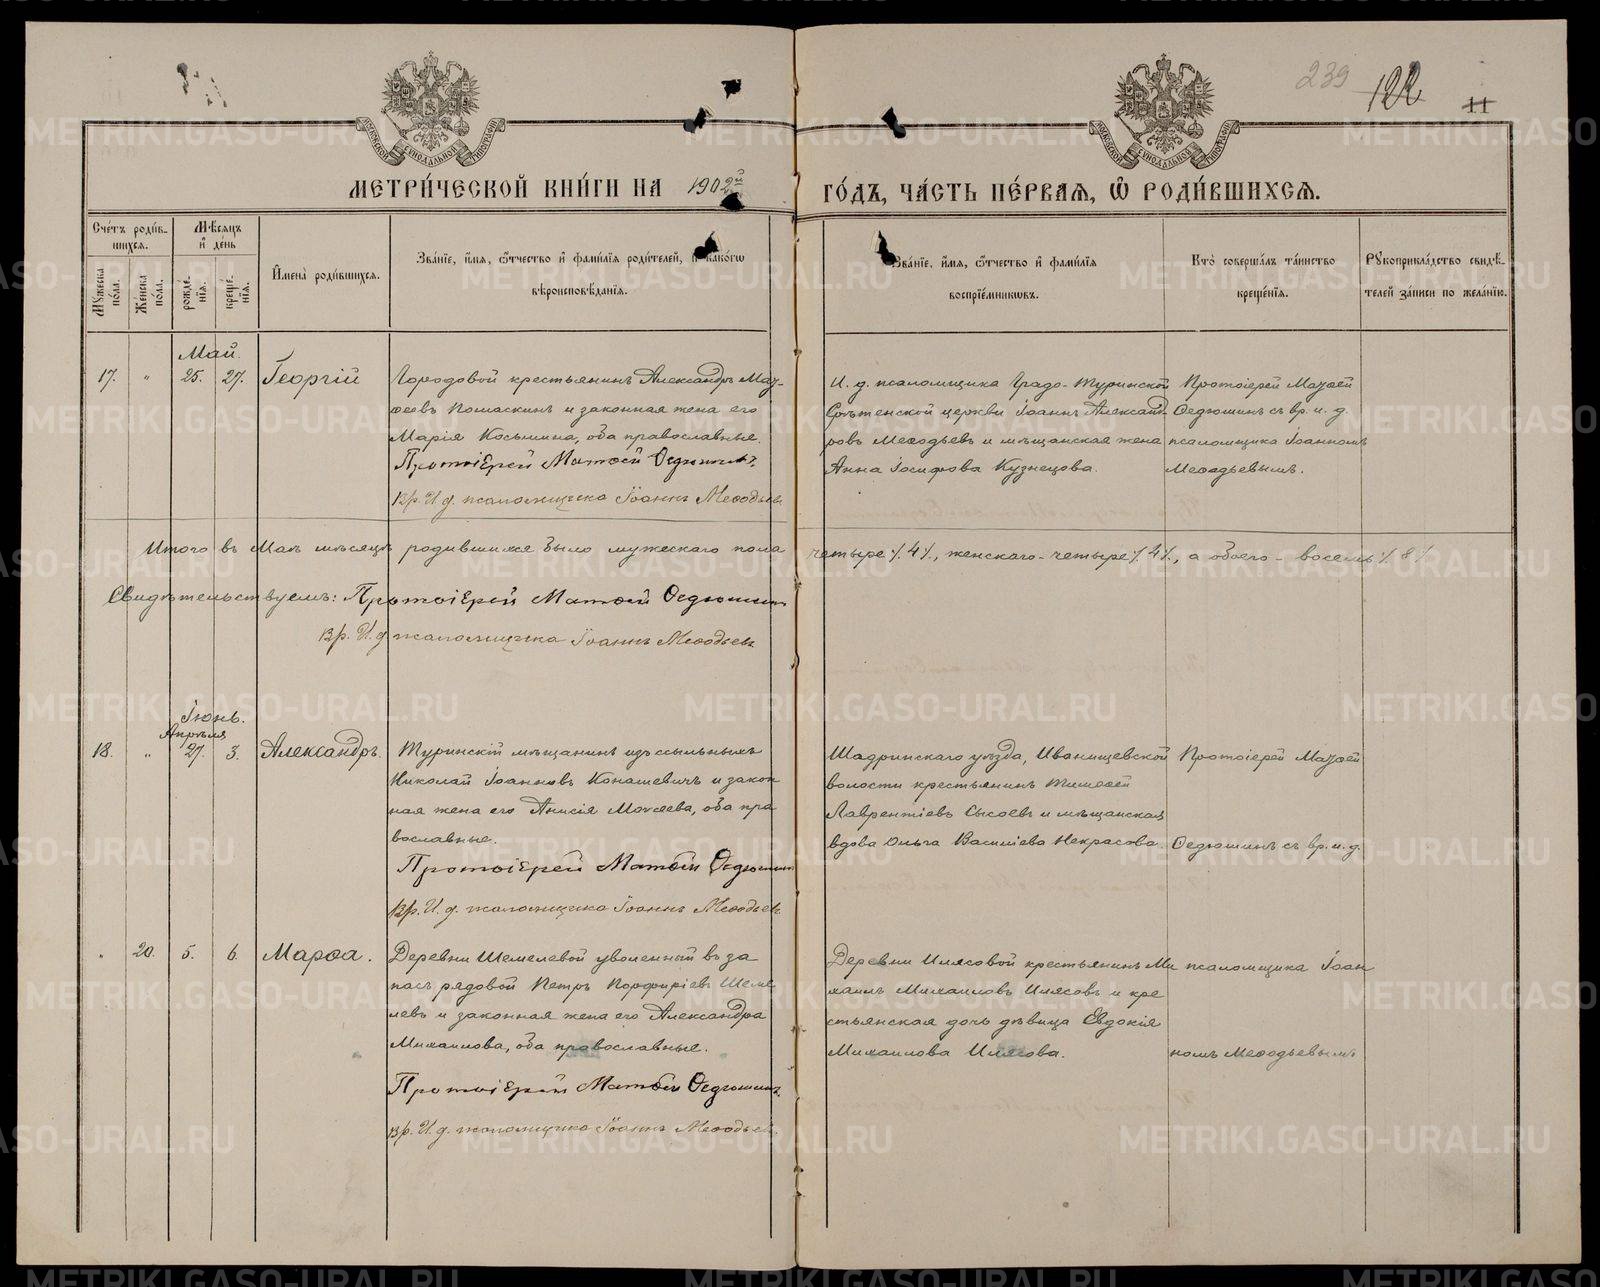 239 122 11
МОСКОВСКОЙ СѴНОДАЛЬНОЙ ТИПОГРАФІИ
МОСКОВСКОЙ СѴНОДАЛЬНОЙ ТИПОГРАФІИ
МЕТРИ́ЧЕСКОЙ КНИ́ГИ НА 1902й ГО́ДЪ, ЧА́СТЬ ПЕ́РВАѦ, Ѡ҆ РОДИ́ВШИХСѦ.
Сче́тъ роди́в-
шихсѧ.
Мꙋ́жеска по́ла.
Же́нска по́ла.
Мѣ́сѧцъ и҆ де́нь
рожде́-нїѧ.
креще́-нїѧ.
И҆мена̀ роди́вшихсѧ.
Зва́нїе, и҆́мѧ, ѻ҆́тчество и҆ фами́лїѧ роди́телей, и҆ како́гѡ
вѣроисповѣ́данїѧ.
Зва́нїе, и҆́мѧ, ѻ҆́тчество и҆ фами́лїѧ
воспрїе́мникѡвъ.
Кто̀ соверша́лъ та́инство
креще́нїѧ.
Рꙋкоприкла́дство свидѣ́-
телей за́писи по жела́нїю.
Май.
17. " 25. 27. Георгій
Городовой крестьянинъ Александръ Мат-
ѳеевъ Помаскинъ и законная жена его
Марія Косьмина, оба православные.
Протоіерей Матѳей Ѳедюшинъ.
Вр. И. д. псаломщика Іоаннъ Меѳодьевъ
И. д. псаломщика Градо-Туринской
Срѣтенской церкви Іоаннъ Александ-
ровъ Меѳодьевъ и мѣщанская жена
Анна Іосифова Кузнецова.
Протоіерей Матѳей
Ѳедюшинъ съ вр. и. д.
псаломщика Іоанномъ
Меѳодьевымъ.
Итого въ Маѣ мѣсяцѣ родившихся было мужескаго пола четыре ⁒ 4 ⁒, женскаго - четыре ⁒ 4 ⁒, а обоего - восемь ⁒ 8 ⁒
Свидѣтельствуемъ: Протоіерей Матѳей Ѳедюшинъ
Вр. И. д. псаломщика Іоаннъ Меѳодьевъ
Іюнь.
Апрѣля
18. " 27. 3. Александръ.
Туринскій мѣщанинъ изъ ссыльныхъ
Николай Іоанновъ Конашевичъ и закон
ная жена его Анисія Моисеева, оба пра
вославные.
Протоіерей Матѳей Ѳедюшинъ
Вр. И. д. псаломщика Іоаннъ Меѳодьевъ
Шадринскаго уѣзда, Иванищевской
волости крестьянинъ Тимоѳей
Лаврентіевъ Сысоевъ и мѣщанская
вдова Ольга Василіева Некрасова.
Протоіерей Матѳей
Ѳедюшинъ съ вр. и. д.
" 20. 5. 6. Марѳа.
Деревни Шемелевой уволенный въ за
пасъ рядовой Петръ Порфиріевъ Шеме
левъ и законная жена его Александра
Михаилова, оба православные.
Протоіерей Матѳей Ѳедюшинъ.
Вр. И. д. псаломщика Іоаннъ Меѳодьевъ
Деревни Илясовой крестьянинъ Ми
хаилъ Михаиловъ Илясовъ и кре
стьянская дочь дѣвица Евдокія
Михаилова Илясова.
псаломщика Іоан
номъ Меѳодьевымъ
METRIKI.GASO-URAL.RU